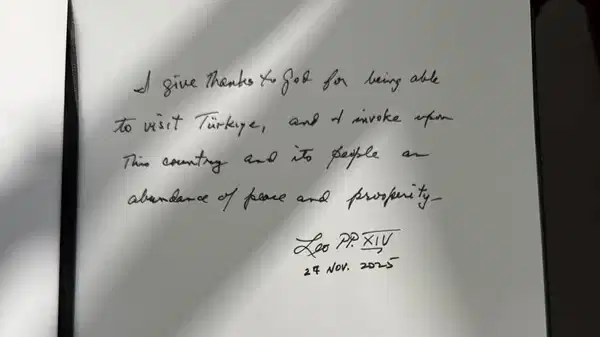 I give thanks to God for being able
to visit Türkiye, and I invoke upon
this country and its people an
abundance of peace and prosperity_
Leo PP. XIV
27 Nov. 2025